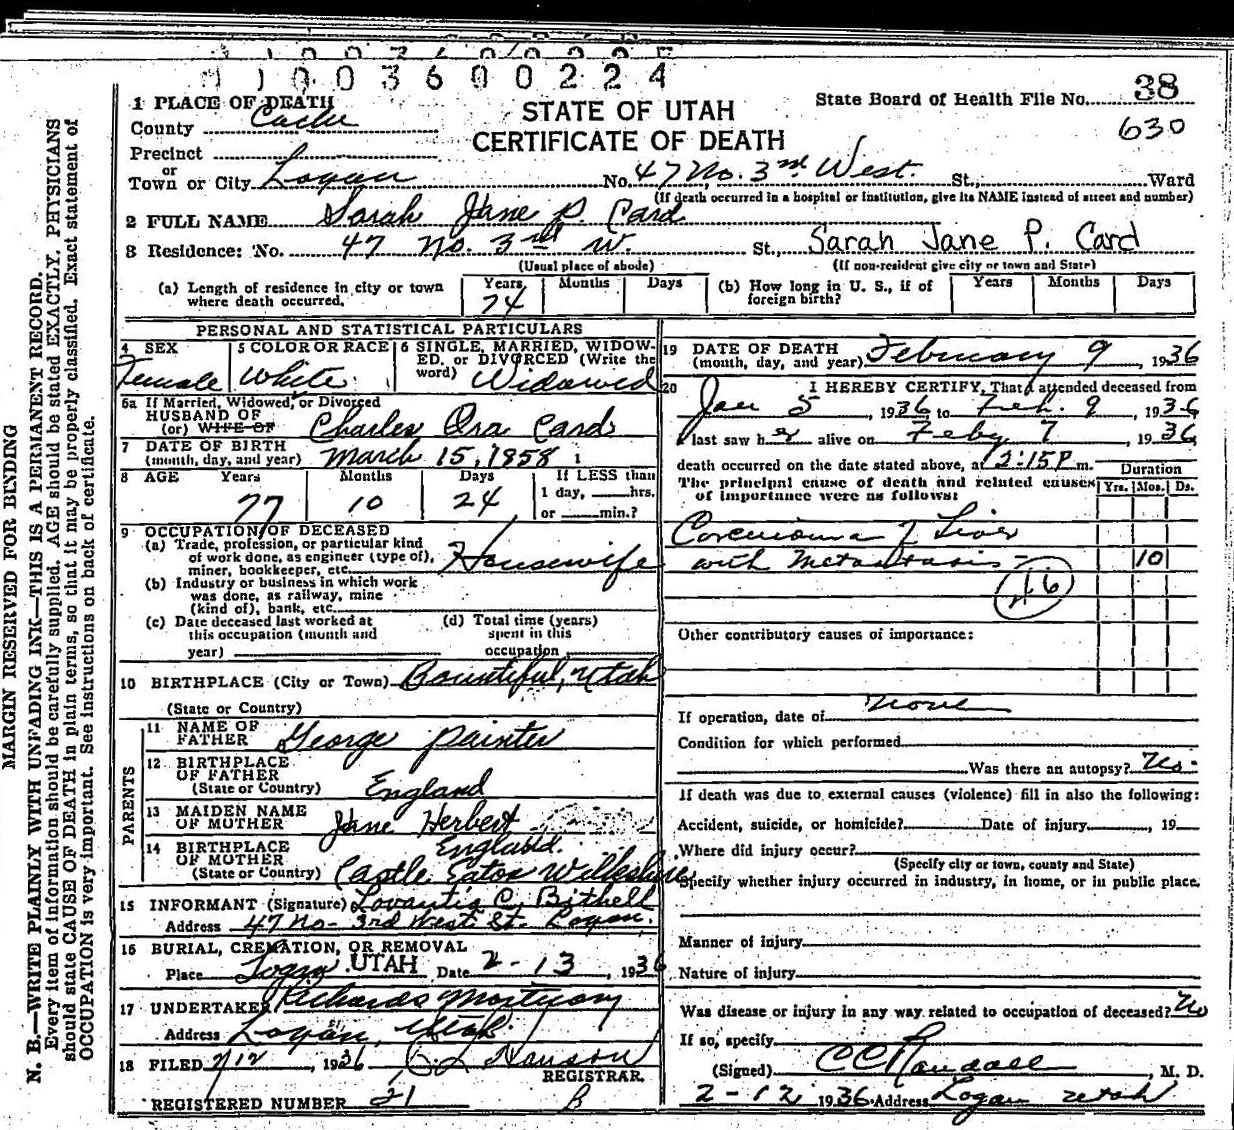 11003600224
1 PLACE OF DEATH
STATE OF UTAH
State Board of Health File No. 38
County Cache
CERTIFICATE OF DEATH
630
Precinct
or
Town or City Logan No. 47 No. 3rd West. St., Ward
(If death occurred in a hospital or institution, give its NAME instead of street and number)
2 FULL NAME Sarah Jane P. Card
3 Residence: No. 47 No. 3rd W. St., Sarah Jane P. Card
(Usual place of abode) (If non-resident give city or town and State)
(a) Length of residence in city or town where death occurred. Years 74 Months Days
(b) How long in U. S., if of foreign birth? Years Months Days
PERSONAL AND STATISTICAL PARTICULARS
4 SEX
Female
5 COLOR OR RACE
White
6 SINGLE, MARRIED, WIDOW-
ED, or DIVORCED (Write the
word) Widowed
6a If Married, Widowed, or Divorced
HUSBAND OF
(or) WIFE OF Charles Ora Card
7 DATE OF BIRTH
(month, day, and year) March 15, 1858 1
8 AGE Years Months Days If LESS than
77 10 24 1 day, hrs.
or min.?
9 OCCUPATION OF DECEASED
(a) Trade, profession, or particular kind
of work done, as engineer (type of),
miner, bookkeeper, etc. Housewife
(b) Industry or business in which work
was done, as railway, mine
(kind of), bank, etc.
(c) Date deceased last worked at
this occupation (month and
year)
(d) Total time (years)
spent in this
occupation
10 BIRTHPLACE (City or Town) Bountiful, Utah
(State or Country)
PARENTS
11 NAME OF
FATHER George Painter
12 BIRTHPLACE
OF FATHER
(State or Country) England
13 MAIDEN NAME
OF MOTHER Jane Herbert
14 BIRTHPLACE England.
OF MOTHER
(State or Country) Castle Eaton Wilkeshire
15 INFORMANT (Signature) Lovantia C. Bithell
Address 47 No- 3rd West St. Logan.
16 BURIAL, CREMATION, OR REMOVAL
Place Logan, UTAH Date 2-13, 1936
17 UNDERTAKER Richards Mortuary
Address Logan, Utah.
18 FILED 2/12, 1936 Hanson
REGISTRAR.
REGISTERED NUMBER 21
19 DATE OF DEATH
(month, day, and year) February 9, 1936
20 I HEREBY CERTIFY, That I attended deceased from
Jan 5, 1936 to Feb. 9, 1936
I last saw her alive on Feby 7, 1936
death occurred on the date stated above, at 12:15 P m.
The principal cause of death and related causes
of importance were as follows:
Duration
Yrs. Mos. Ds.
Carcinoma of Liver
with Metastasis - 10
46
Other contributory causes of importance:
If operation, date of none
Condition for which performed
Was there an autopsy? No.
If death was due to external causes (violence) fill in also the following:
Accident, suicide, or homicide? Date of injury , 19
Where did injury occur?
(Specify city or town, county and State)
Specify whether injury occurred in industry, in home, or in public place.
Manner of injury
Nature of injury
Was disease or injury in any way related to occupation of deceased? No
If so, specify
(Signed) C C Randall, M. D.
2-12 1936 Address Logan Utah
MARGIN RESERVED FOR BINDING
N. B.—WRITE PLAINLY WITH UNFADING INK—THIS IS A PERMANENT RECORD.
Every item of information should be carefully supplied. AGE should be stated EXACTLY. PHYSICIANS
should state CAUSE OF DEATH in plain terms, so that it may be properly classified. Exact statement of
OCCUPATION is very important. See instructions on back of certificate.